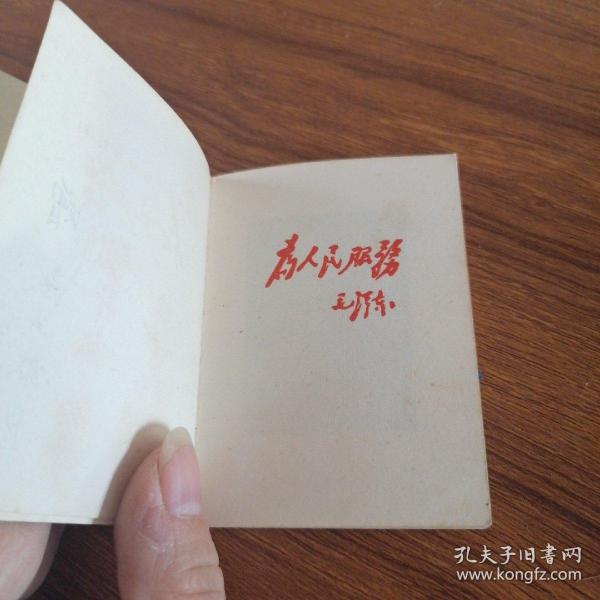 为人民服務
毛泽东
孔夫子旧书网
www.kongfz.com